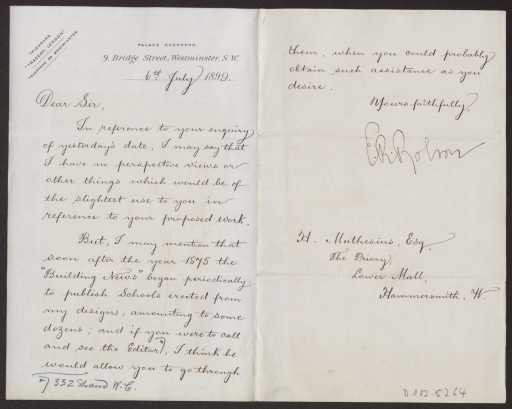 TELEGRAMS
PALACE CHAMBERS,
9, Bridge Street, Westminster, S.W.
6th July 1899.
Dear Sir,
In reference to your enquiry
of yesterday's date, I may say that
I have no perspective views or
other things which would be of
the slightest use to you in
reference to your proposed work.
But, I may mention that
soon after the year 1875 the
"Building News" began periodically
to publish Schools erected from
my designs, amounting to some
dozens; and if you were to call
and see the Editor*), I think he
would allow you to go through
*) 332 Strand W.C.
them, when you could probably
obtain such assistance as you
desire.
Yours faithfully,
E R Robson
H. Muthesius, Esq.
The Priory,
Lower Mall,
Hammersmith, W.
D 102-5264